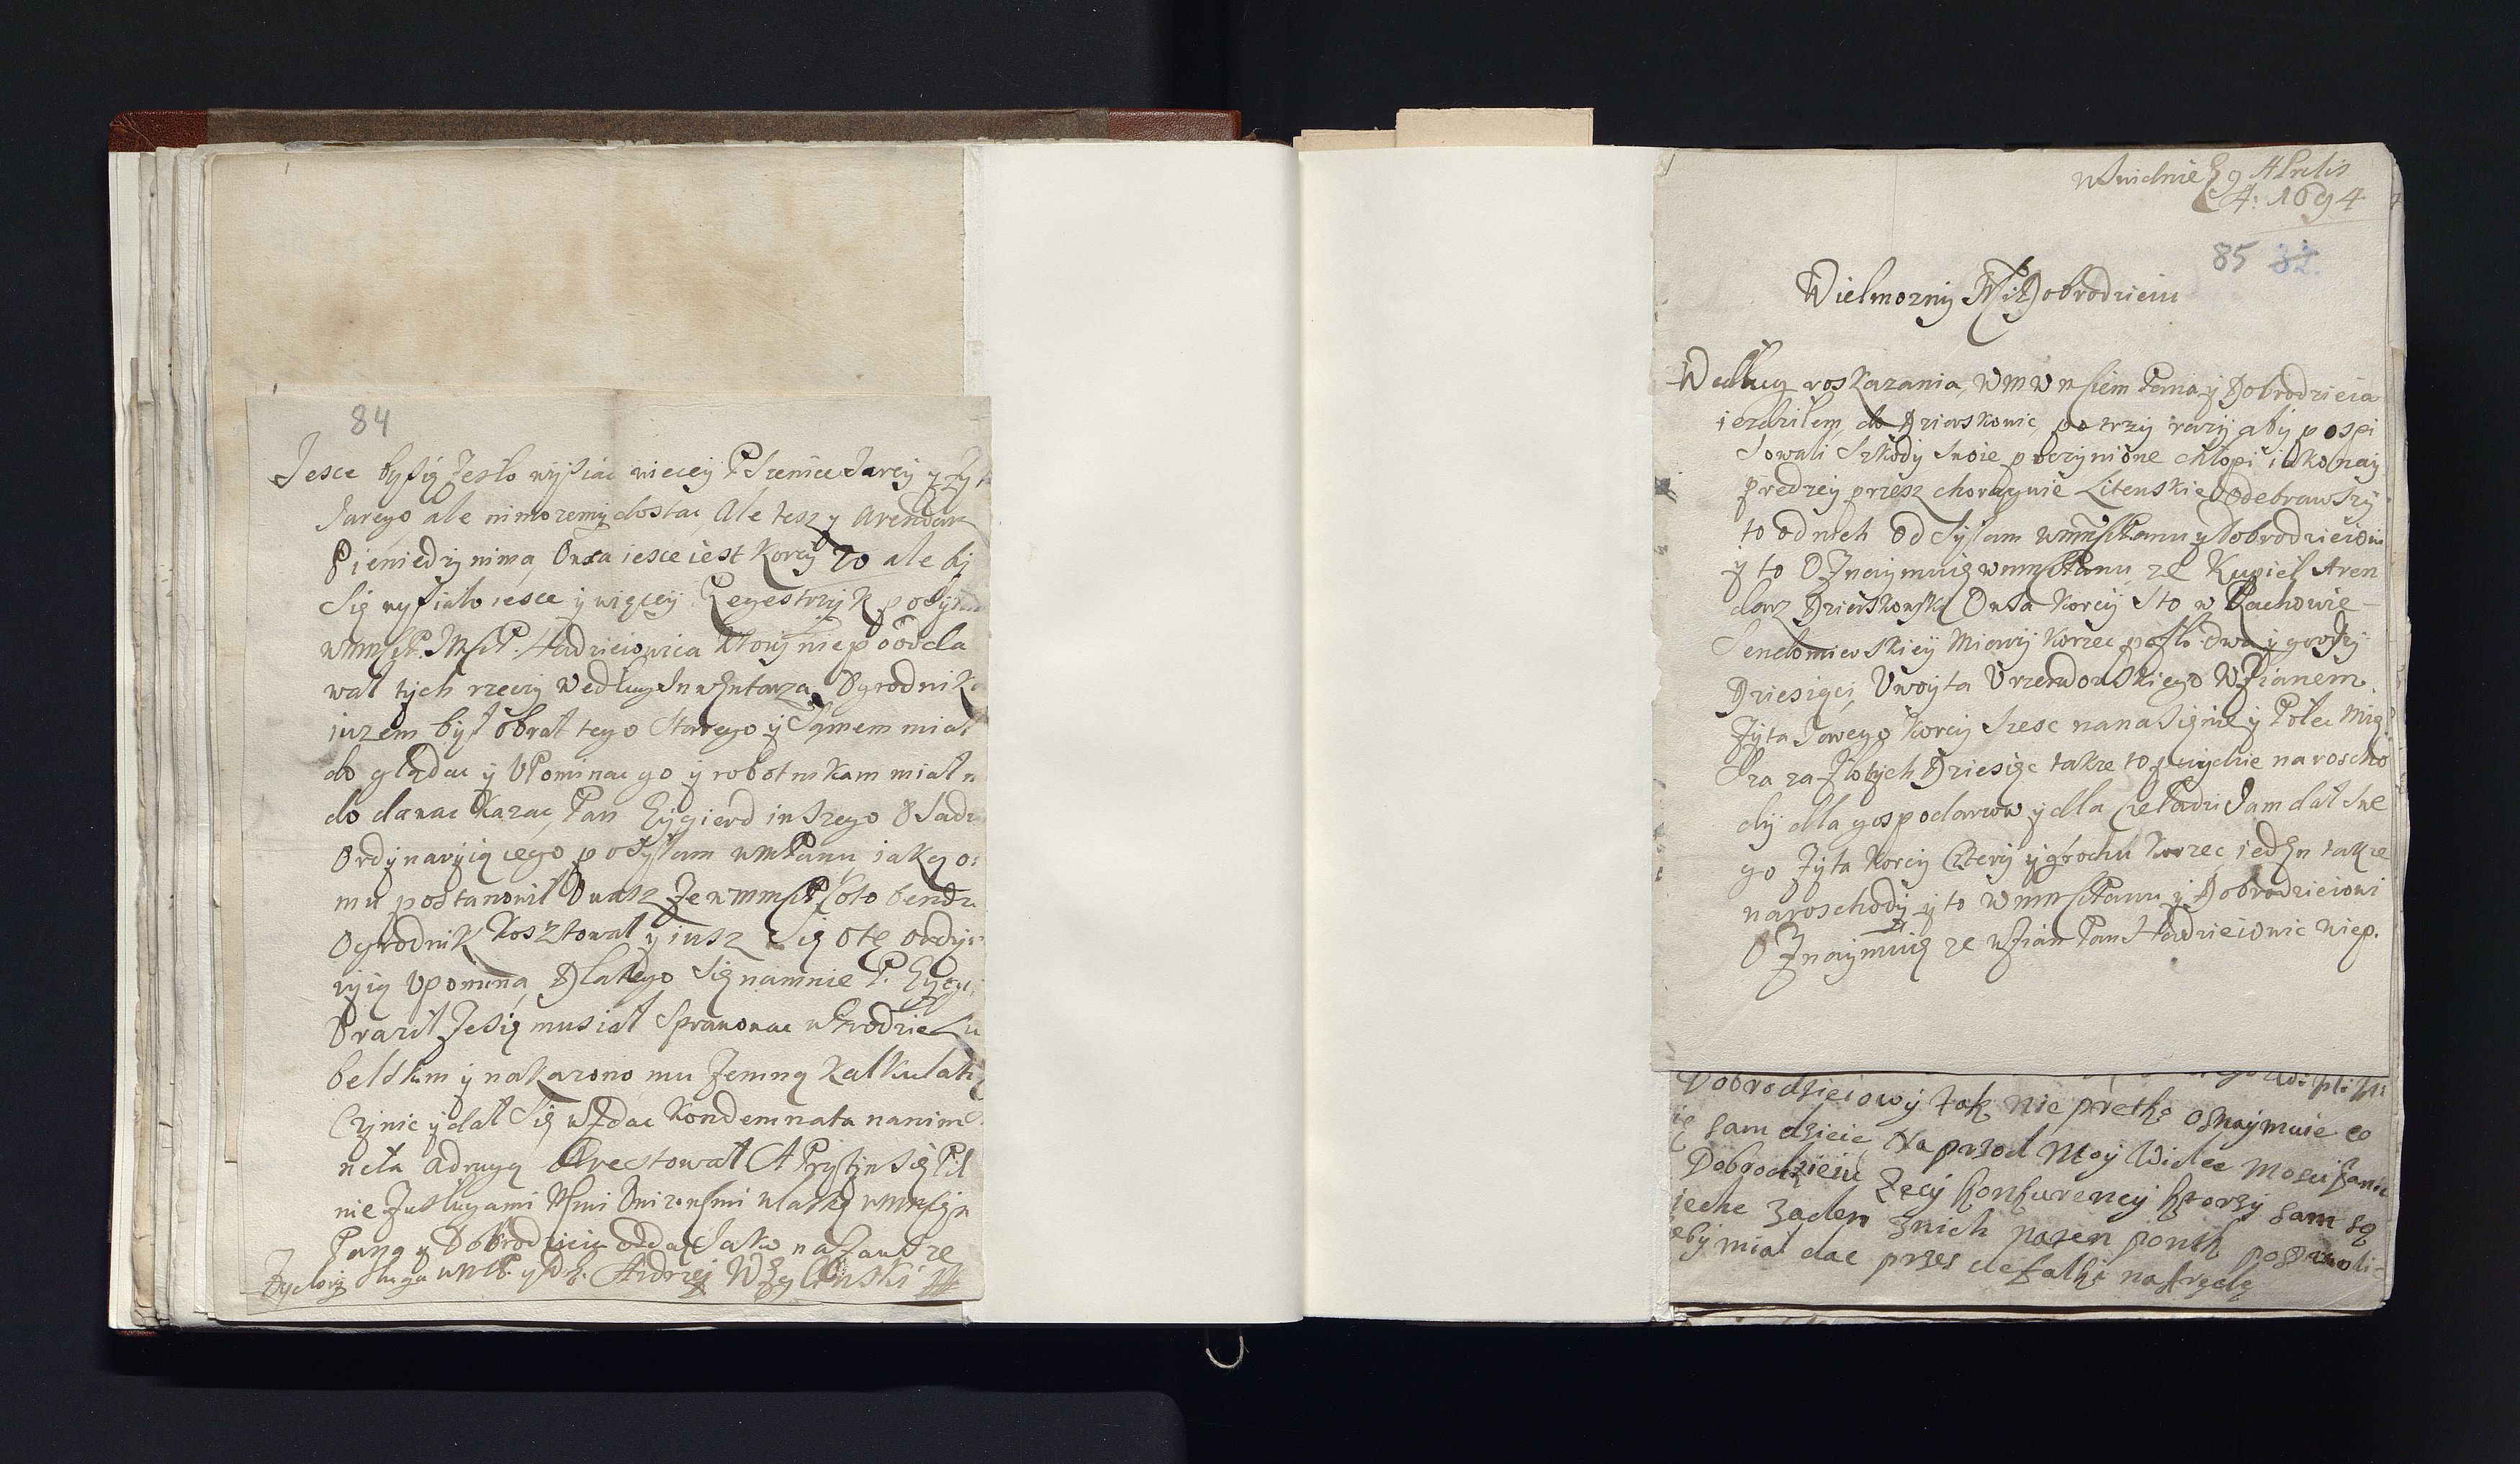 84
Jesce bysię zesło wysiac wiecey Pszenice Jarey y zy
Jarego ale nimozemy dostac, Ale tesz y Arendarz
Pieniedzy nima, Owsa iesce iest Korcy 20 ale by
Się wysiało iesce y więcey Regestrzyk posył
wmmsCP. JMsCP. Hadzieiowica Ktory niepoodda
wał tych rzeczy Według Inwentarza, Ogrodnika
iuzem był obrał tego Starego y Samem miał
do glądac y Upominac go y robotnikam miał
do dawac Kazac, Pan Eygierd inszego
Ordynaryią iego posyłam wmPanu iaką
mu postanowił Owasz ze wmmsCP. bendzi
Ogrodnik Kosztował y iusz Się otę ordyn
ryią Upomina, Dlatego Się namnie P. Eygi
Uraził zesię musiał Sprawowac wGrodzie Lu
belskim y nakazono mu zemną Kalkulatią
Czynic y dał Się wzdac Kondemnata nanim
neta adrugą Arestował A Przytym Się Pil
nie zusługami Memi Unizonemi właskę
Pana y Dobrodzieia oddaię Jako nazawsze
Zycliwy Sługa Andrzey
wSwidnie 9 APrilis
A: 1694
85 32.
Wielmozny M: Dobrodzieiu
Wedlug roskazania, Pana y Dobrodzieia
iezdziłem, do Dzierskowic, po trzy razy aby pospi
Sowali Szkody Swoie poczynione chłopi iako nay
predzey przesz chorągwie Litewskie Odebrawszy
to od nich Odsyłam wmmsCPanu y Dobrodzieiowi
y to OZnaymuię wmmsCPanu, ze Kupieł Aren
darz Dzierskowski Owsa Korcy Sto w Rachowie
Sendomierskiey Miary Korzec posło dwa y groszy
Dziesięci, Uwoyta Urzendowskiego Wziałem
Zyta Jarego Korcy Szesc nanasienie y Połec Mię
Sza za złotych Dziesięc takze to poydzie naroscho
dy dla gospodarzow y dla Czeladzi Sam dał Swe
go Zyta Korcy Cztery y grochu Korzec ieden takze
naroschody y to wmmsCPanu y Dobrodzieiowi
OZnaymuię ze wział Pan Hadzieiowic wiep.
Dobrodzieiowy tak nie pretko osnaymuie co
sam dzieie, Na przod Moy Wielce Mosci Panie
Dobrodzieiu Zecy konkurency ktorzy sam są
iedne zaden snich pozwoli
eby miał dac przes